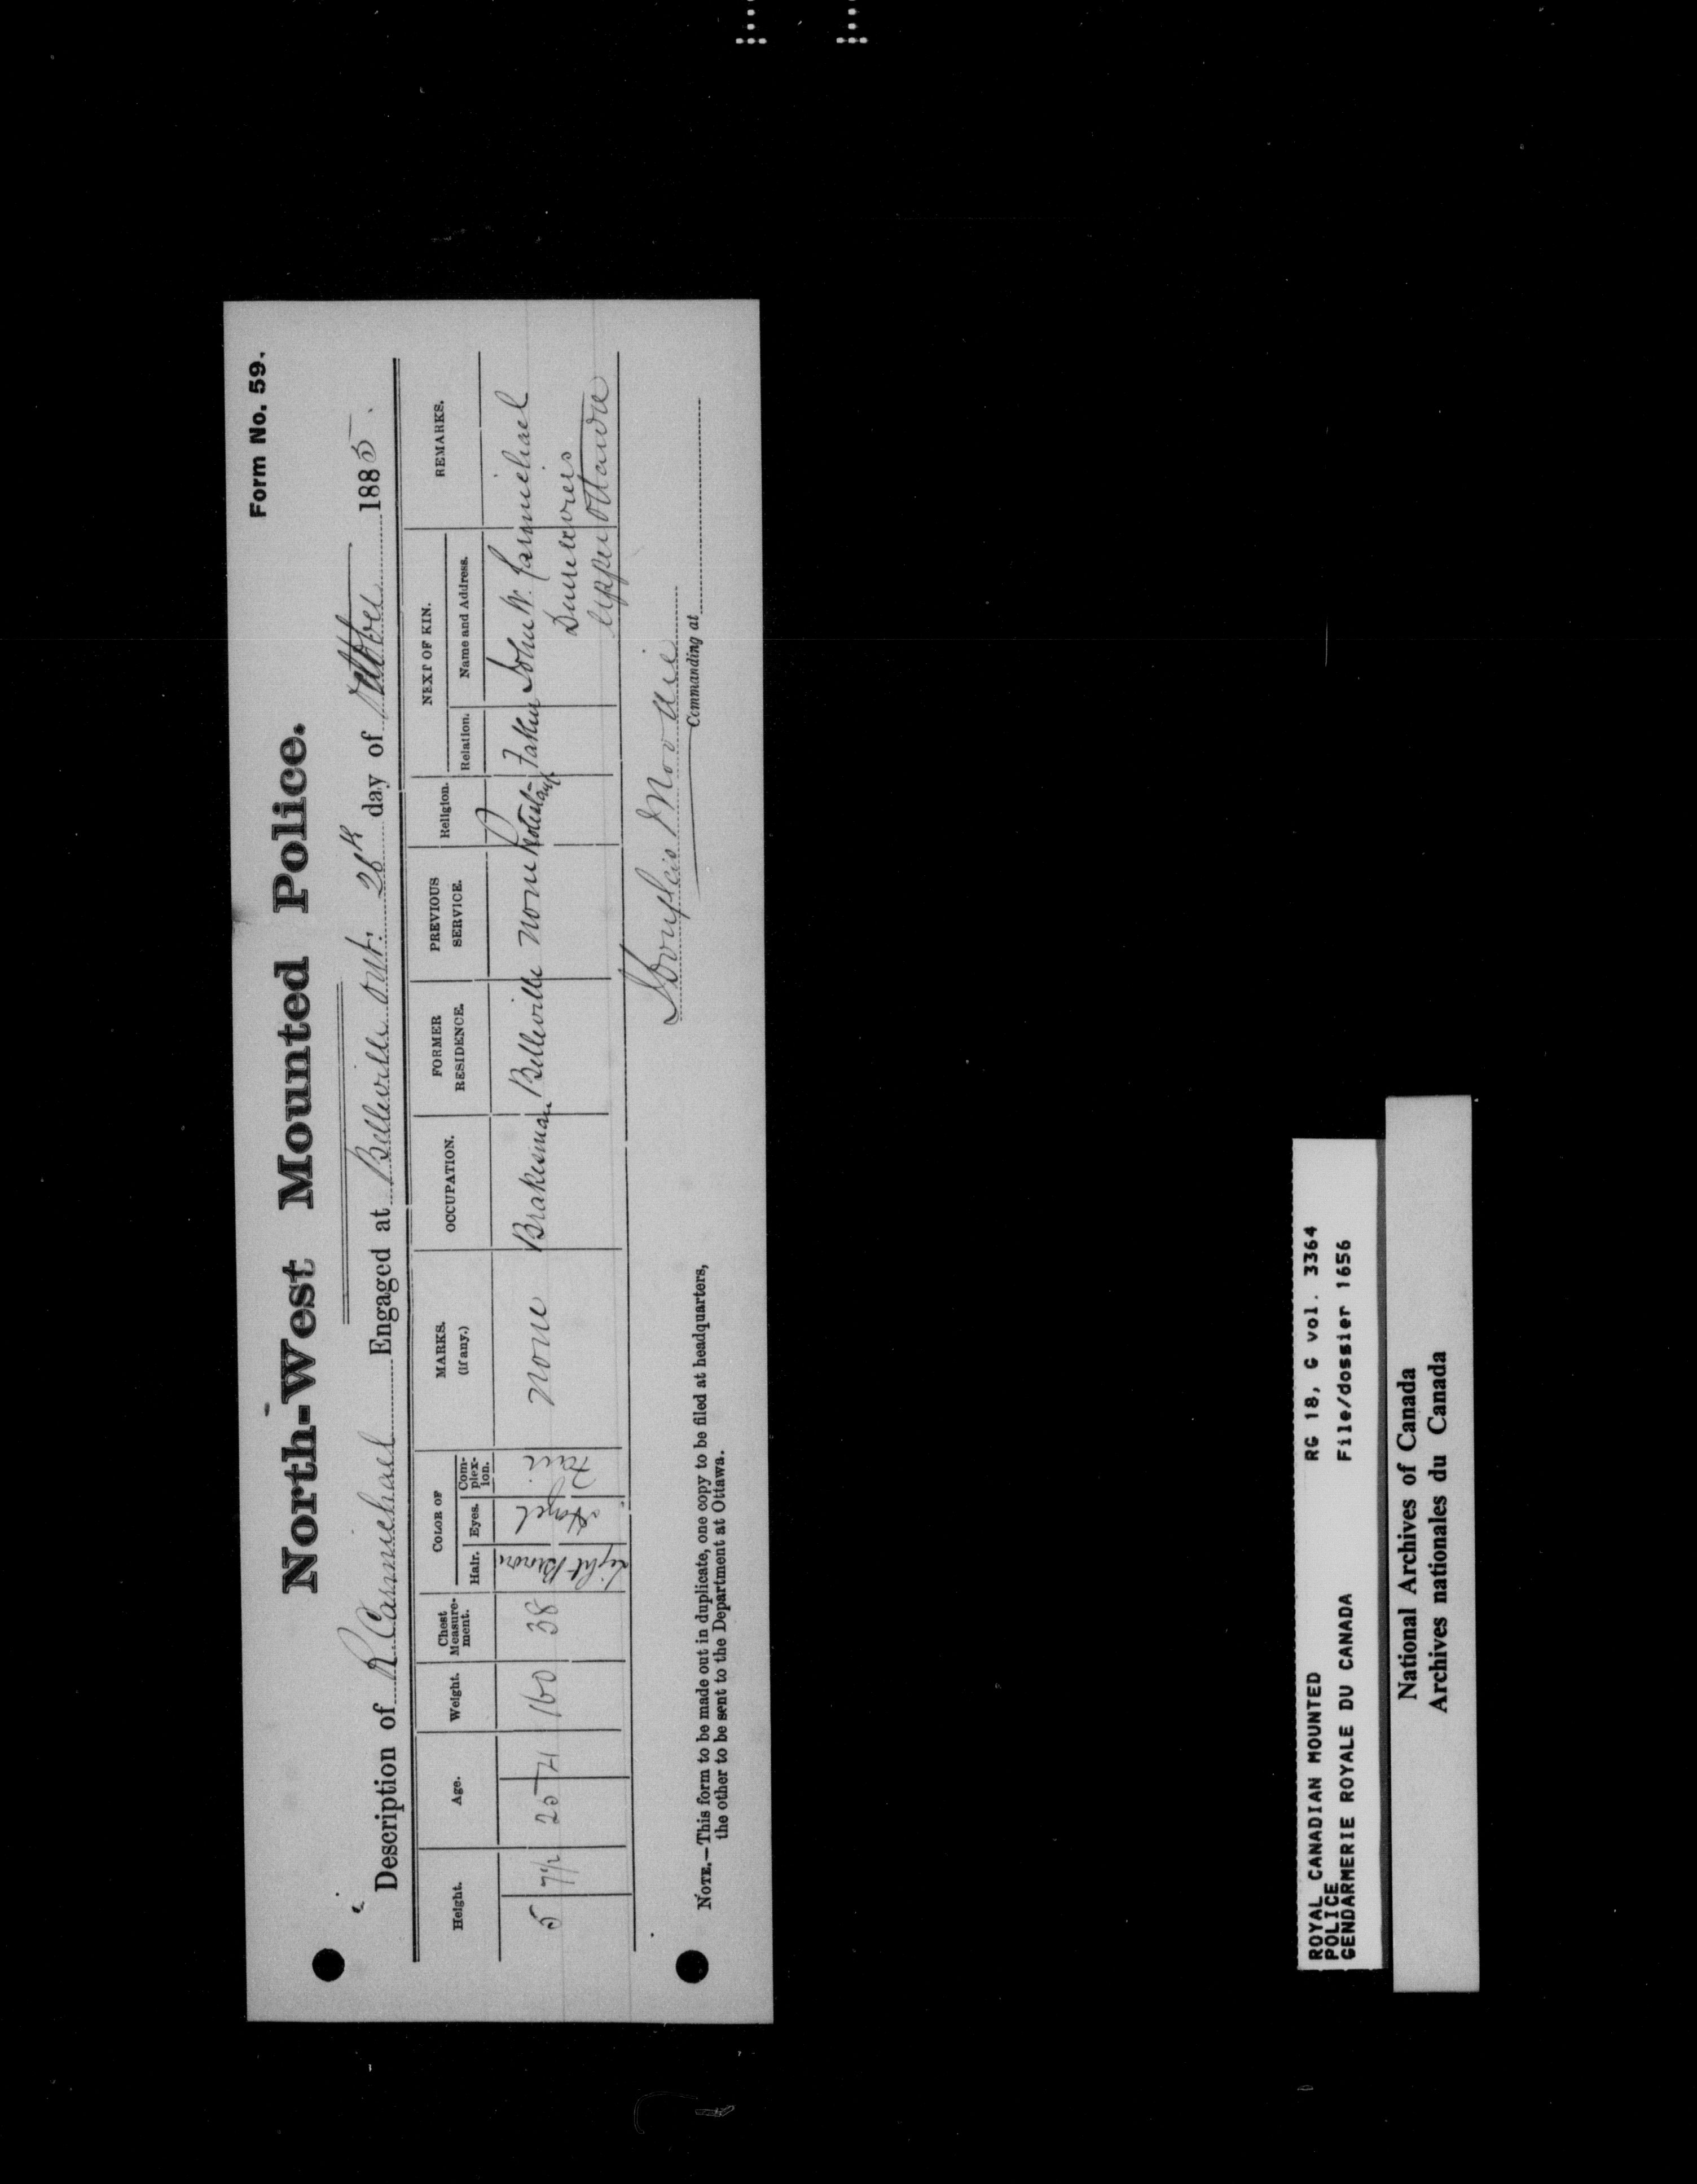 Form No. 59.
North-West Mounted Police.
Description of R Carmichael Engaged at Belleville Ont. 28th day of October 1885.
Height. Age. Weight. Chest Measure-ment. COLOR OF Hair. Eyes. Com-plex-ion. MARKS. (if any.) OCCUPATION. FORMER RESIDENCE. PREVIOUS SERVICE. Religion. NEXT OF KIN. Relation. Name and Address. REMARKS.
5 7½ 25 160 38 Light Brown Hazel Fair None Brakesman Belleville None Protestant Father John W. Carmichael
Upper Ottawa
Douglas Moodie
Commanding at
NOTE.—This form to be made out in duplicate, one copy to be filed at headquarters,
the other to be sent to the Department at Ottawa.
ROYAL CANADIAN MOUNTED RG 18, G vol. 3364
POLICE
GENDARMERIE ROYALE DU CANADA File/dossier 1656
National Archives of Canada
Archives nationales du Canada